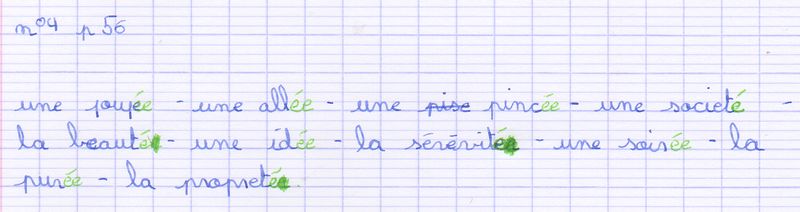 n°4 p 56
une poupée - une allée - une pise pincée - une societé -
la beauté - une idée - la sérévité - une soirée - la
purée - la propreté.